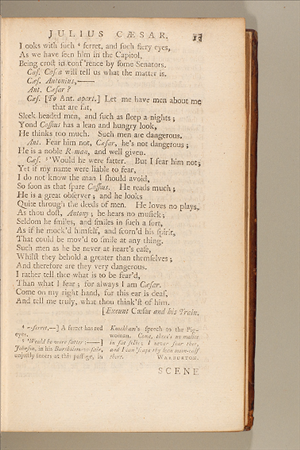 JULIUS CÆSAR. 13
Looks with such ferret, and such fiery eyes,
As we have seen him in the Capitol,
Being crost in conf'rence by some Senators.
Cas. Casca will tell us what the matter is.
Cæs. Antonius,——
Ant. Cæsar?
Cæs. [To Ant. apart.] Let me have men about me
that are fat,
Sleek headed men, and such as sleep a nights;
Yond Cassius has a lean and hungry look,
He thinks too much. Such men are dangerous.
Ant. Fear him not, Cæsar, he's not dangerous;
He is a noble Roman, and well given.
Cæs. 'Would he were fatter. But I fear him not;
Yet if my name were liable to fear,
I do not know the man I should avoid,
So soon as that spare Cassius. He reads much;
He is a great observer; and he looks
Quite through the deeds of men. He loves no plays,
As thou dost, Antony; he hears no musick;
Seldom he smiles, and smiles in such a sort,
As if he mock'd himself, and scorn'd his spirit,
That could be mov'd to smile at any thing.
Such men as he be never at heart's ease,
Whilst they behold a greater than themselves;
And therefore are they very dangerous.
I rather tell thee what is to be fear'd,
Than what I fear; for always I am Cæsar.
Come on my right hand, for this ear is deaf,
And tell me truly, what thou think'st of him.
[Exeunt Cæsar and his Train.
ferret,—] A ferret has red
eyes.
'Would he were fatter;——]
Johnson, in his Bartholomew-fair,
unjustly sneers at this passage, in
Knockham's speech to the Pig-
woman. Come, there's no malice
in fat folks; I never fear thee,
and I can 'scape thy lean moon-calf
there. WARBURTON.
SCENE